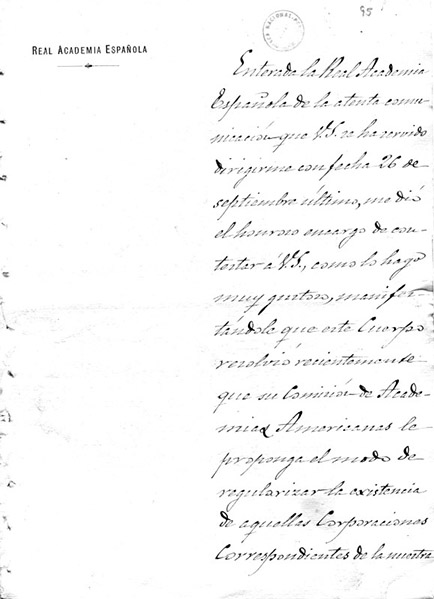 REAL ACADEMIA ESPAÑOLA
95
Enterada la Real Academia
Española de la atenta comu-
nicación que V.S. se ha servido
dirigirme con fecha 26 de
septiembre último, me dió
el honroso encargo de con-
testar á V.S., como lo hago
muy gustoso, manifes-
tándole que este Cuerpo
resolvió recientemente
que su Comisión de Acade-
mias Americanas le
proponga el modo de
regularizar la existencia
de aquellas Corporaciones
Correspondientes de la nuestra